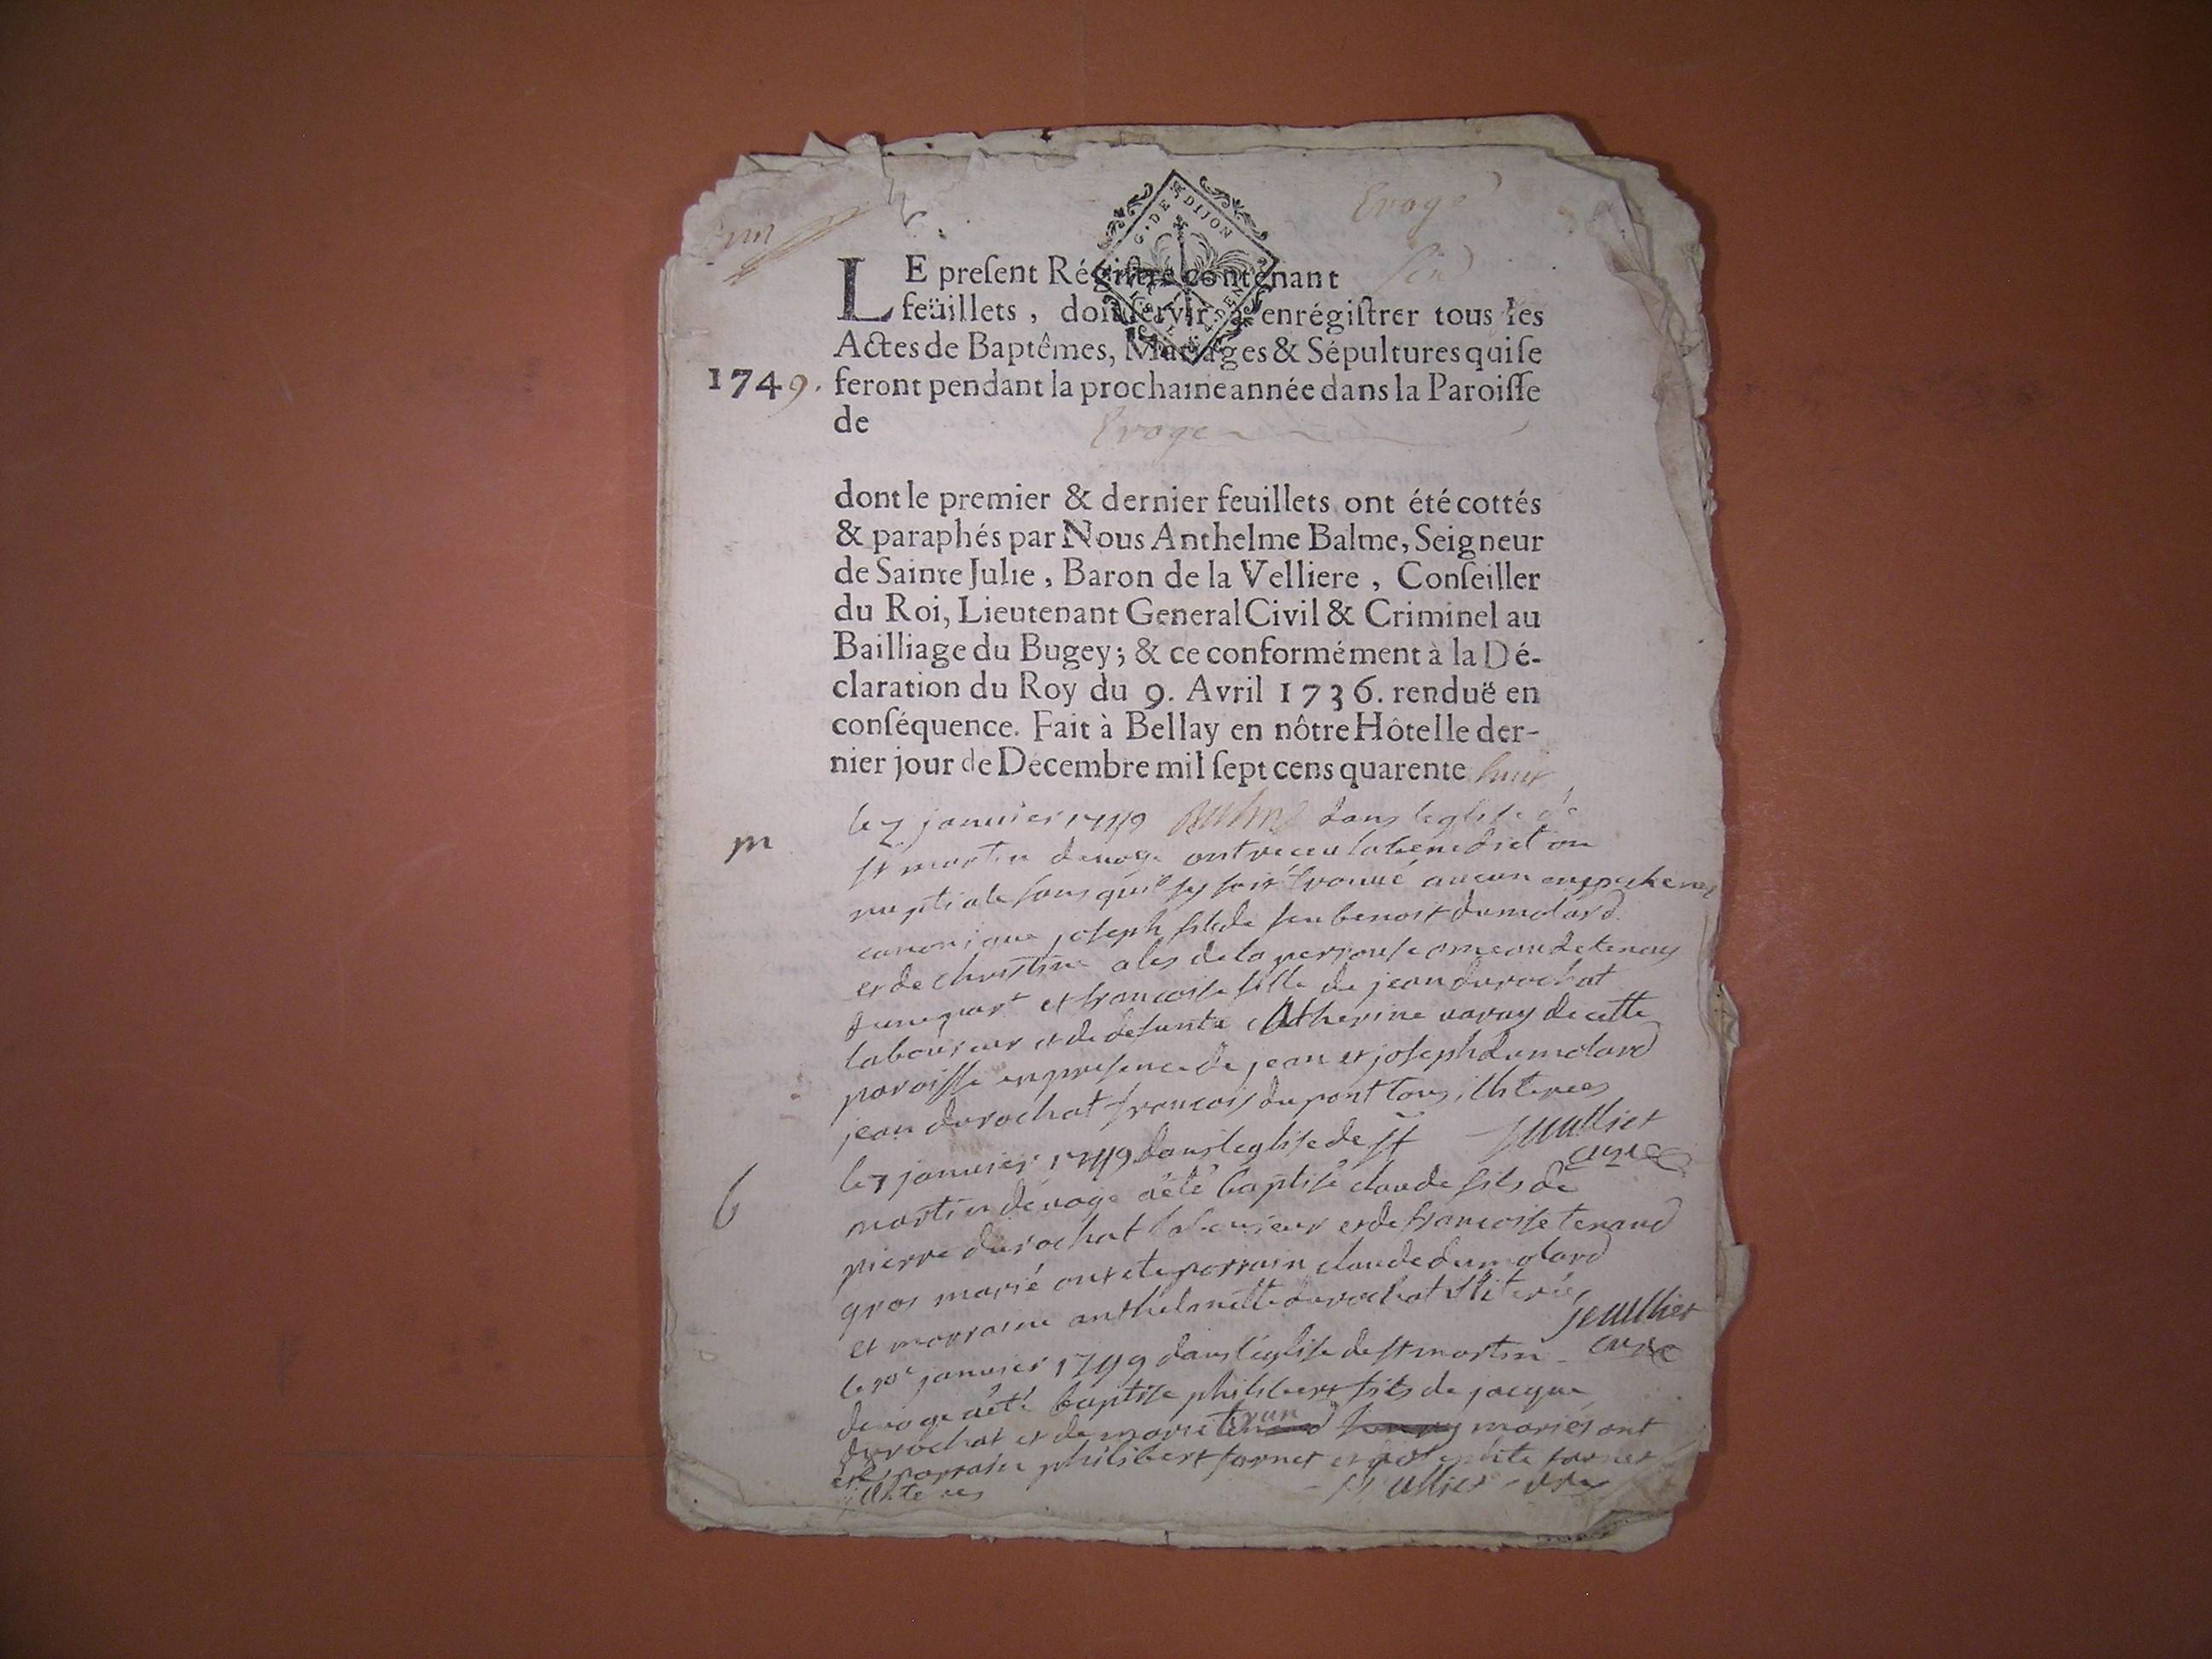 Evoge
G. DE DIJON
LE preſent Régiſtre contenant
feüillets, doit ſervir à enrégiſtrer tous les
Actes de Baptêmes, Mariages & Sépultures qui ſe
1749. feront pendant la prochaine année dans la Paroiſſe
de Evoge
dont le premier & dernier feuillets ont été cottés
& paraphés par Nous Anthelme Balme, Seigneur
de Sainte Julie, Baron de la Velliere, Conſeiller
du Roi, Lieutenant General Civil & Criminel au
Bailliage du Bugey; & ce conformément à la Dé-
claration du Roy du 9. Avril 1736. renduë en
conſéquence. Fait à Bellay en nôtre Hôtel le der-
nier jour de Décembre mil ſept cens quarente huit
le 7 janvier 1749 dans leglise de
m
st martin devoge ont receu la benediction
nuptiale sans quil sy soit trouvé aucun
canonique joseph fils de feu benoist dumolard
et de christine ales de la
dune part et francoise fille de jean durochat
laboureur et de defunte Catherine varay de cette
paroisse en presence de jean et joseph dumolard
jean durochat francois dupont tous illiterees
curé
le 7 janvier 1749 dans leglise de st
b
martin devoge a été baptisé claude fils de
pierre durochat laboureur et de francoise tenand
gros marié ont ete parrain claude dumolard
et marraine anthelmette durochat illiterés
curé
le 10e janvier 1749 dans l'église de st martin
devoge a été baptisé philibert fils de jacque
durochat et de marie mariés ont
été parrain philibert fornet et fornet
illiterees